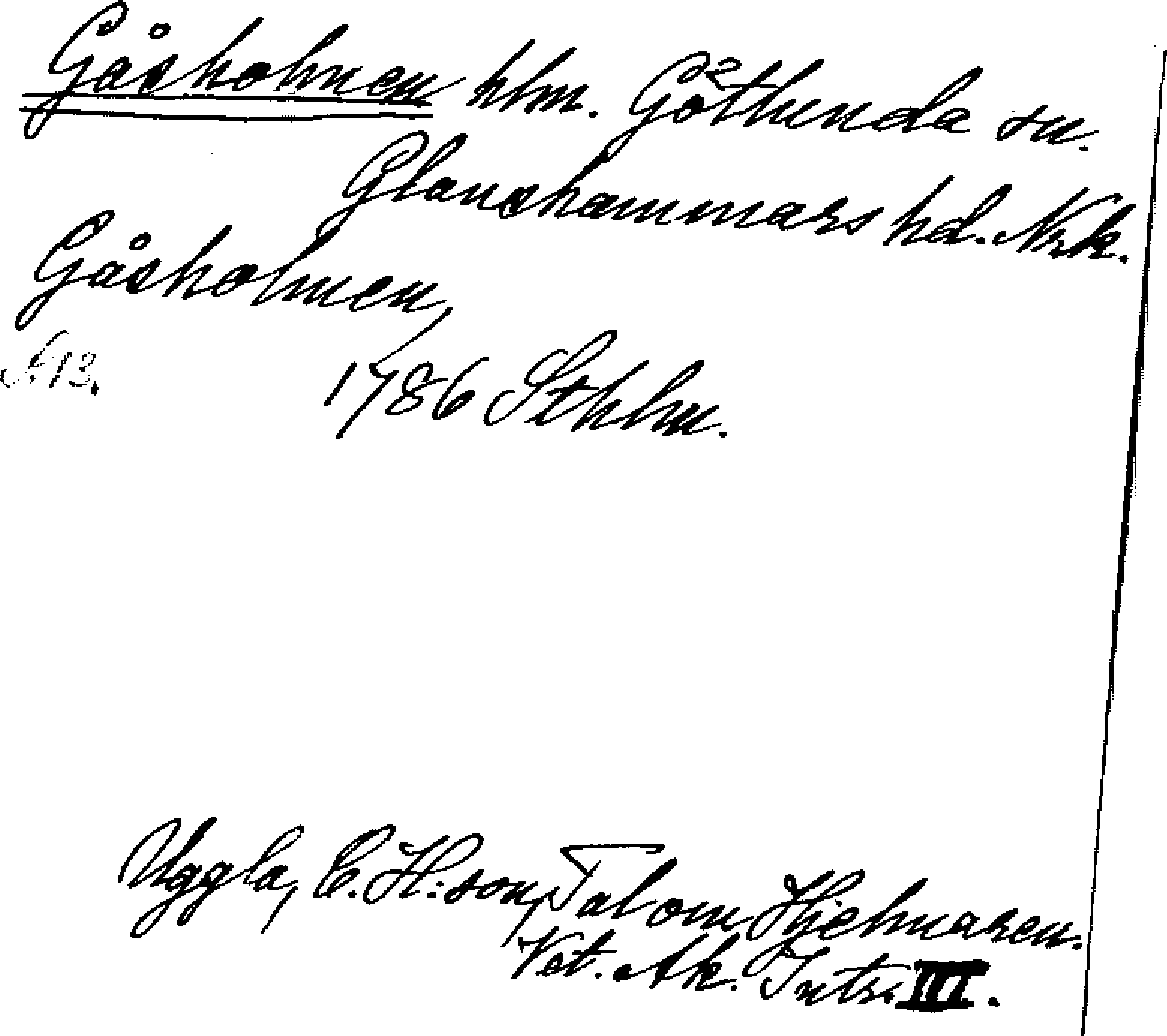 Gåsholmen hlm. Götlunda sn.
Glanshammars hd. Nrk.
Gåsholmen,
1786 Sthlm.
Uggla, C. H:son, Tal om Hjelmaren.
Vet. Ak. Intr. III.